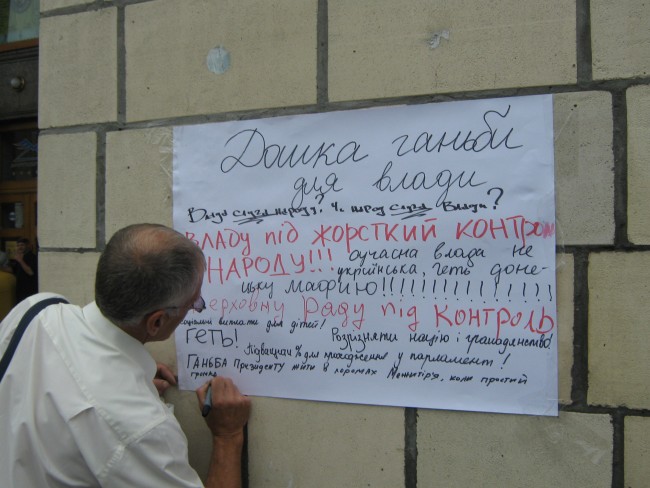 Дошка ганьби
для влади
Влада слуга народу? Чи народ слуга Влади?
ВЛАДУ під ЖОРСТКИЙ КОНТРОЛ
НАРОДУ!!! сучасна влада не
українська, геть доне-
цьку мафію!!!!!!!!!!!!!!!
Верховну Раду під КОНТРОЛЬ
соціальні виплати для дітей!
ГЕТЬ! Розрізняти націю і громадянство
Підвищили % для проходження у парламент!
ГАНЬБА Президенту жити в хоромах Межигір'я, коли простий